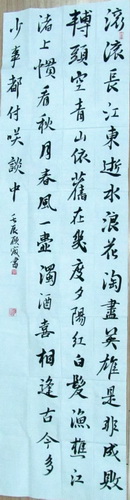 滚滚長江東逝水浪花淘盡英雄是非成敗
轉頭空青山依舊在幾度夕陽紅白髮漁樵江
渚上慣看秋月春風一壺濁酒喜相逢古今多
少事都付咲談中
壬辰書